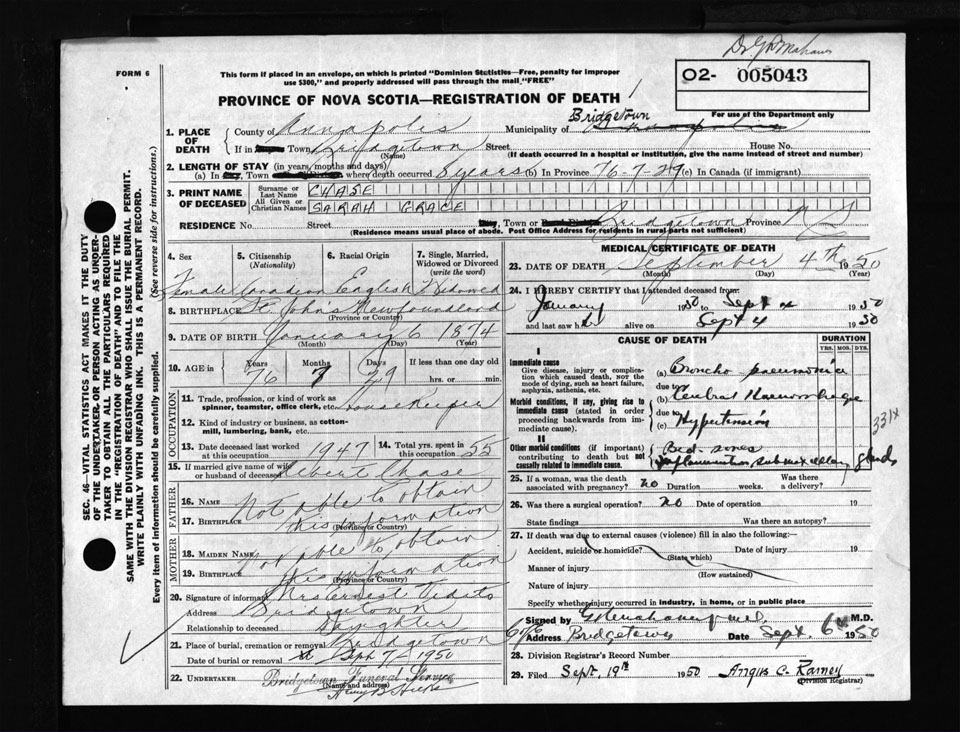 FORM 6
This form if placed in an envelope, on which is printed "Dominion Statistics—Free, penalty for improper
use $300," and properly addressed will pass through the mail "FREE"
O2- 005043
For use of the Department only
PROVINCE OF NOVA SCOTIA—REGISTRATION OF DEATH
SEC. 46—VITAL STATISTICS ACT MAKES IT THE DUTY
OF THE UNDERTAKER OR PERSON ACTING AS UNDER-
TAKER TO OBTAIN ALL THE PARTICULARS REQUIRED
IN THE "REGISTRATION OF DEATH" AND TO FILE THE
SAME WITH THE DIVISION REGISTRAR WHO SHALL ISSUE THE BURIAL PERMIT.
WRITE PLAINLY WITH UNFADING INK. THIS IS A PERMANENT RECORD.
Every item of information should be carefully supplied. (See reverse side for instructions.)
1. PLACE OF DEATH County of Annapolis Municipality of Bridgetown
If in Town Bridgetown Street House No.
(Name) (If death occurred in a hospital or institution, give the name instead of street and number)
2. LENGTH OF STAY (in years, months and days)
(a) In Town where death occurred 8 years (b) In Province 76-7-29 (c) In Canada (if immigrant)
3. PRINT NAME OF DECEASED Surname or Last Name CHASE
All Given or Christian Names SARAH GRACE
RESIDENCE No. Street Town or Bridgetown Province N S
(Residence means usual place of abode. Post Office Address for residents in rural parts not sufficient)
4. Sex 5. Citizenship (Nationality) 6. Racial Origin 7. Single, Married, Widowed or Divorced (write the word)
Female Canadian English Widowed
8. BIRTHPLACE St. John's Newfoundland
(Province or Country)
9. DATE OF BIRTH January 6 1874
(Month) (Day) (Year)
10. AGE in Years Months Days If less than one day old
76 7 29 hrs. or min.
OCCUPATION
11. Trade, profession, or kind of work as
spinner, teamster, office clerk, etc. Housekeeper
12. Kind of industry or business, as cotton-
mill, lumbering, bank, etc.
13. Date deceased last worked at this occupation 1947 14. Total yrs. spent in this occupation 55
15. If married give name of wife or husband of deceased Chase
FATHER
16. Name Not able to obtain
17. Birthplace this information
(Province or Country)
MOTHER
18. Maiden Name Not able to obtain
19. Birthplace this information
(Province or Country)
20. Signature of informant Mrs Ernest
Address Bridgetown
Relationship to deceased Daughter
21. Place of burial, cremation or removal Bridgetown
Date of burial or removal Sept 7/- 1950
22. UNDERTAKER Bridgetown Funeral Service
(Name and address)
MEDICAL CERTIFICATE OF DEATH
23. DATE OF DEATH September 4th 1950
(Month) (Day) (Year)
24. I HEREBY CERTIFY that I attended deceased from
January 1950 to Sept 1950
and last saw h alive on Sept 4 1950
CAUSE OF DEATH DURATION
YRS. MOS. DYS.
I
Immediate cause
Give disease, injury or complica-
tion which caused death, not the
mode of dying, such as heart failure,
asphyxia, asthenia, etc.
(a) Broncho pneumonia
due to
Morbid conditions, if any, giving rise to
immediate cause (stated in order
proceeding backwards from im-
mediate cause).
(b) Cerebral Haemorrhage
due to
(c) Hypertension
331X
II
Other morbid conditions (if important)
contributing to death but not
causally related to immediate cause.
Bed sores
Inflammation submaxillary glands
25. If a woman, was the death associated with pregnancy? no Duration weeks. Was there a delivery?
26. Was there a surgical operation? no Date of operation 19
State findings Was there an autopsy?
27. If death was due to external causes (violence) fill in also the following:—
Accident, suicide or homicide? Date of injury 19
(State which)
Manner of injury
(How sustained)
Nature of injury
Specify whether injury occurred in industry, in home, or in public place
Signed by M.D.
Address Bridgetown Date Sept. 6 1950
28. Division Registrar's Record Number
29. Filed Sept. 19th 1950 Angus C. Ramey
(Division Registrar)